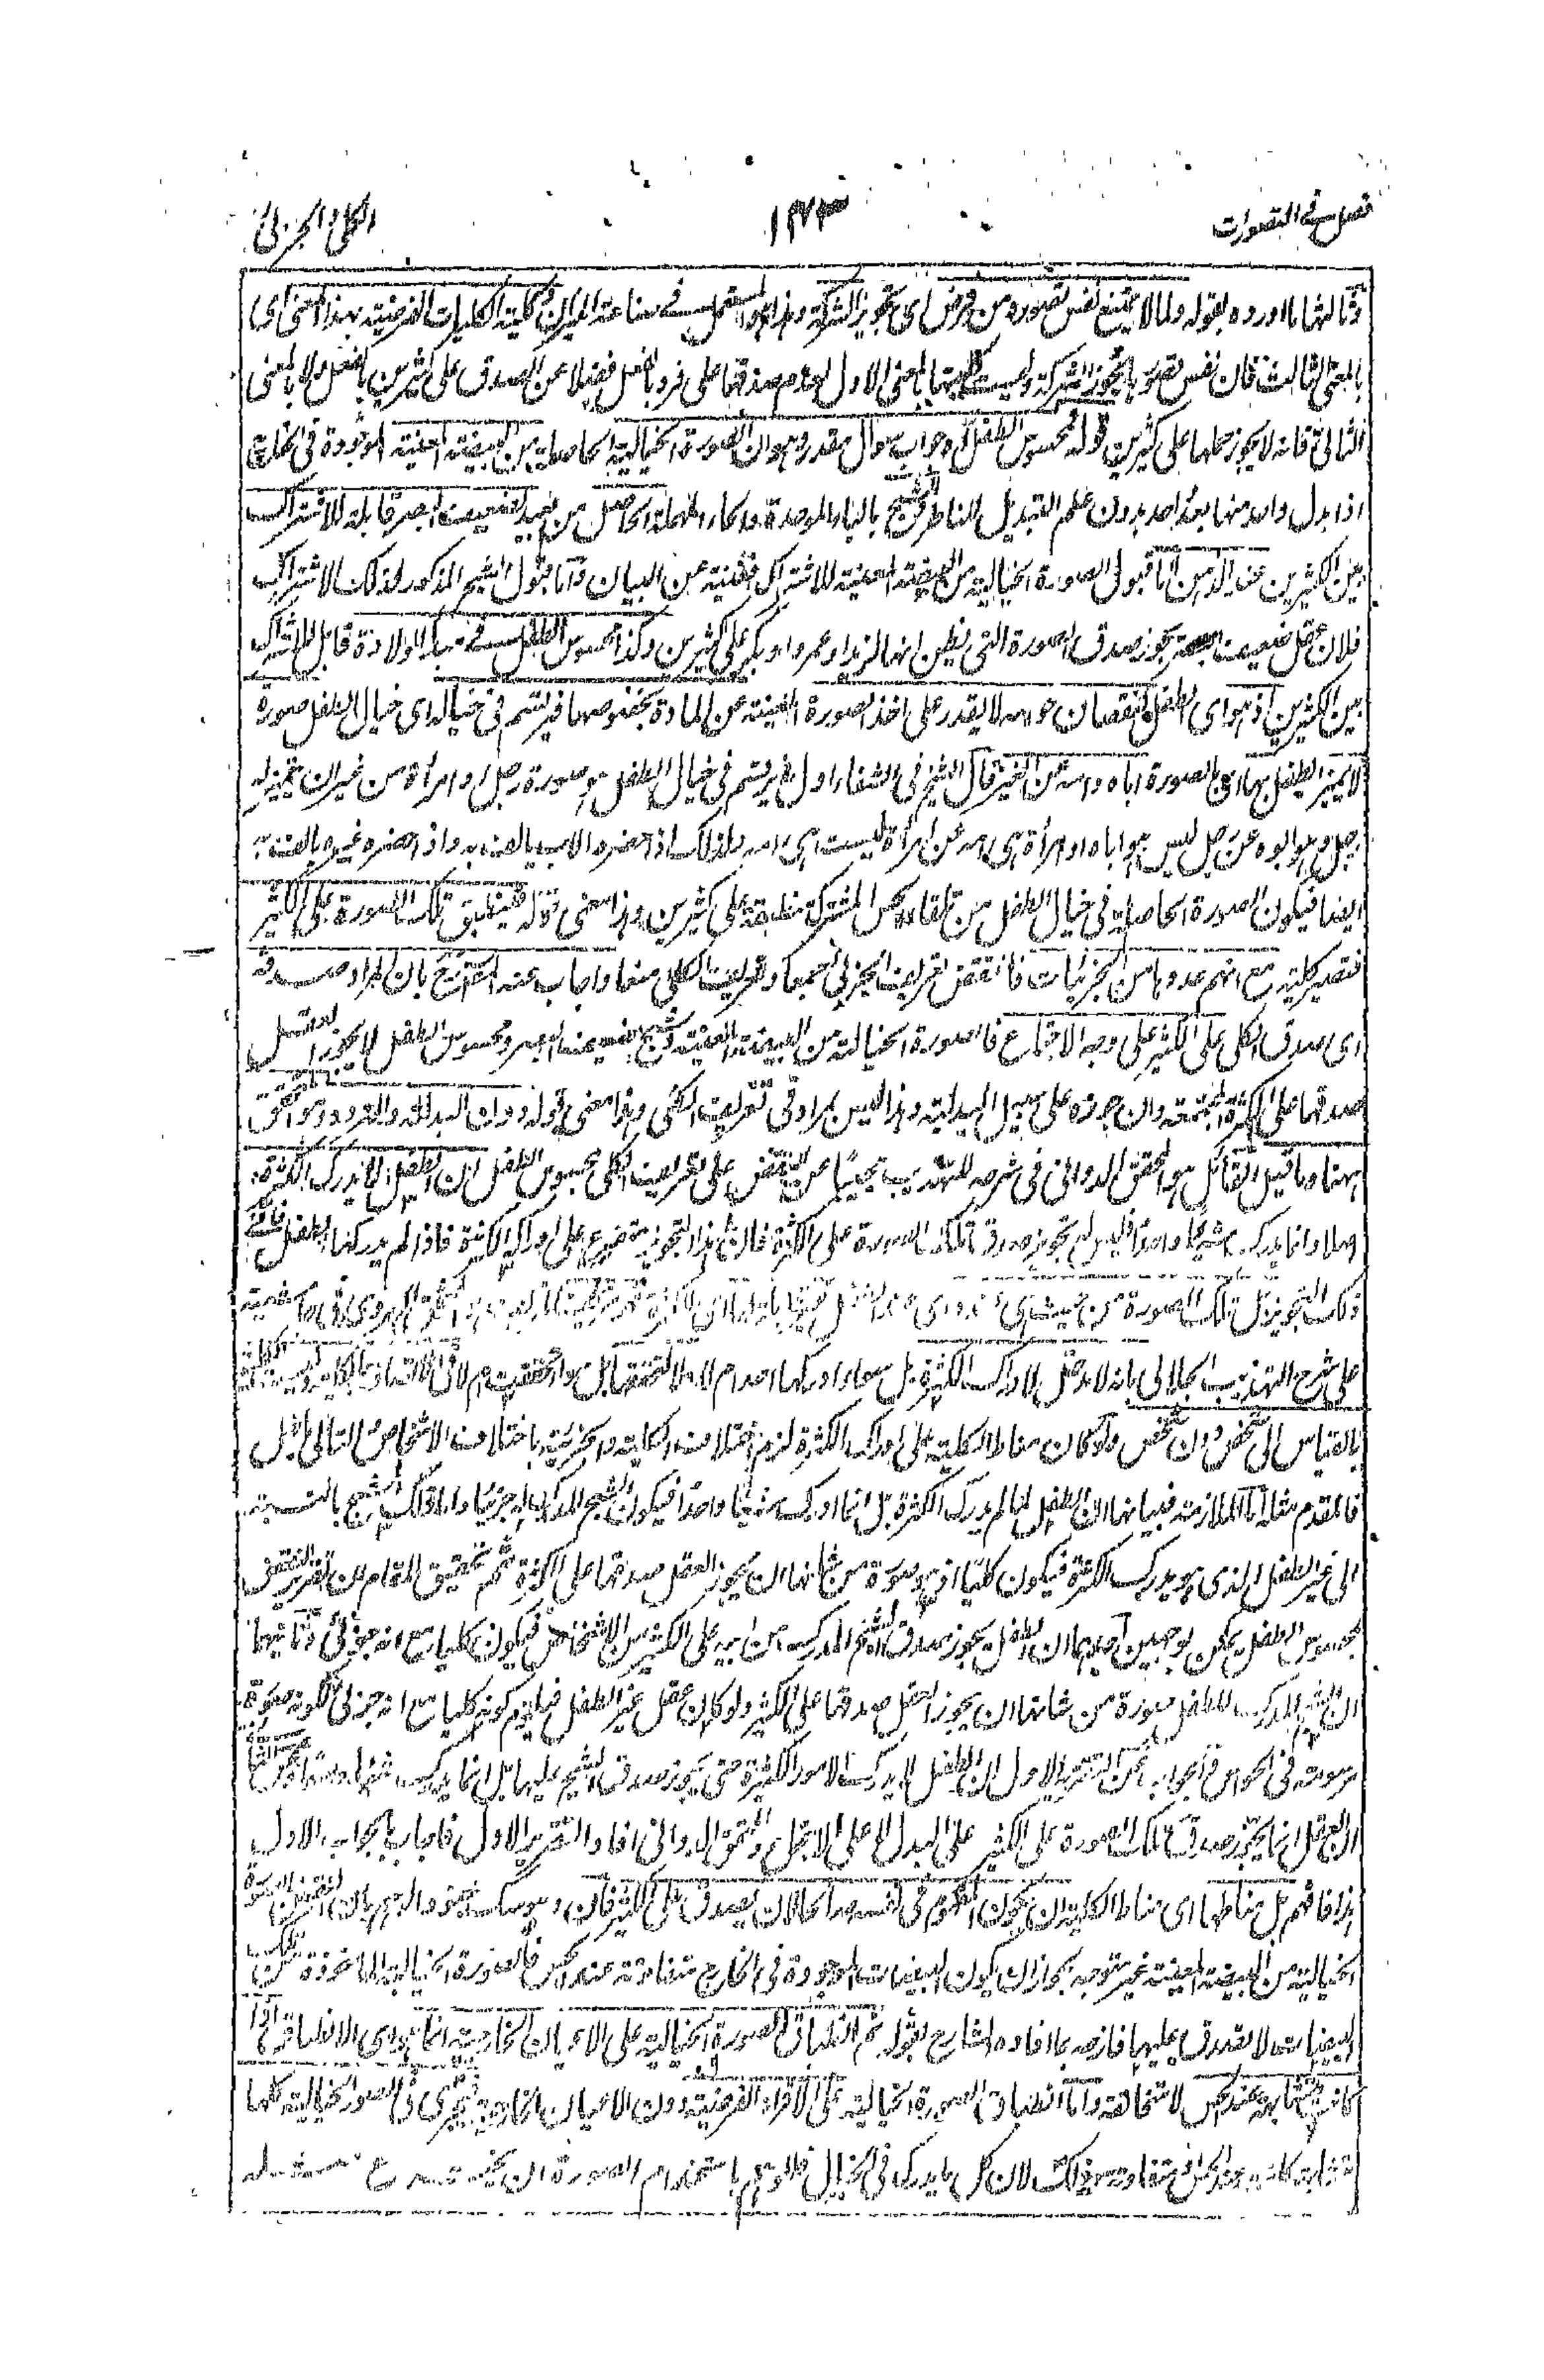 فصل في التصورات
١٢٣
الكلي والجزئي
وثالثها ما اورده بقوله ولما لا يمتنع نفس تصوره من فرض اي تجويز الشركة وهذا هو المستعمل في صناعة الميزان وكلية الكليات الفرضية بهذا المعنى اي
بالمعنى الثالث فان نفس تصورها يجوز الشركة وليست كليتها بالمعنى الاول لعدم صدقها على فرد بالفعل فضلا عن الصدق على كثيرين بالفعل ولا بالمعنى
الثاني فانه لا يجوز حملها على كثيرين قوله محسوس الطفل اه جواب سوال مقدر وهو ان الصورة الخيالية الحاصلة من البيضة المعينة الموجودة في الخارج
اذا بدل واحد منها بعد واحد بدون علم التبديل للناظر والشبح بالباء الموحدة والحاء المهملة الحاصل من لضعيف البصر قابلة للاشتراك
بين الكثيرين عند الذهن اما قبول الصورة الخيالية من البيضة المعينة للاشتراك فغنية عن البيان واما قبول الشبح المذكور لذلك الاشتراك
فلان عقل ضعيف البصر يجوز صدق الصورة التي يظن انها لزيد او عمرو او بكر على كثيرين وكذا محسوس الطفل في مبدأ الولادة قابل للاشتراك
بين الكثيرين اذ هو اي الطفل لنقصان حواسه لا يقدر على اخذ الصورة المعينة عن المادة بخصوصها فيرتسم في خياله اي خيال الطفل صورة
لا يميز الطفل بها اي بالصورة اباه وامه عن الغير قال الشيخ في الشفاء اول ما يرتسم في خيال الطفل هو صورة رجل او امرأة من غير ان يتميز له
رجل وهو ابوه عن رجل ليس هو اباه او امرأة هي امه عن امرأة ليست هي امه ولذلك اذا حضره الاب يالف به واذا حضره غيره يالف به
ايضا فيكون الصورة الحاصلة في خيال الطفل من تلقاء الحس المشترك منطبقة على كثيرين وهذا معنى قوله فينطبق تلك الصورة على الكثير
فتصير كلية مع انهم عدوها من الجزئيات فانتقض تعريف الجزئي جمعا وتعريف الكلي منعا واجاب عنه بان المراد صدقه
اي صدق الكلي على الكثير على وجه الاجتماع فالصورة الخيالية من البيضة المعينة وشبح ضعيف البصر ومحسوس الطفل لا يجوز العقل
صدقها على الكثرة المجتمعة وان جوزه على سبيل البدلية وهذا ليس بمراد في تعريف الكلي وهذا معنى قوله دون البدلية والتردد وهو متحقق
ههنا وما قيل القائل هو المحقق الدواني في شرحه للتهذيب مجيبا عن النقض على تعريف الكلي بمحسوس الطفل ان الطفل لا يدرك الكثرة
اصلا وانما يدرك شيئا واحدا فليس له تجويز صدق تلك الصورة على الكثرة فان هذا التجويز متفرع على ادراك الكثرة فاذا لم يدركها الطفل
ذلك التجويز بل تلك الصورة من حيث
على شرح التهذيب الجلالي بانه لا دخل لادراك الكثرة بل سواء ادركها احد ام لا
بالقياس الى شخص دون شخص ولو كان مناط الكلية على ادراك الكثرة لزم اختلاف الكلية والجزئية باختلاف الاشخاص والتالي باطل
فالمقدم مثله اما الملازمة فبيانها ان الطفل لما لم يدرك الكثرة بل انما ادرك شيئا واحدا فيكون الشبح المدرك له جزئيا وذلك الشبح بالنسبة
الى غير الطفل الذي هو يدرك الكثرة فيكون كليا اذ هو صورة من شانها ان يجوز العقل صدقها على الكثرة ثم تحقيق المقام ان تقرير النقض
بمحسوس الطفل يمكن بوجهين احدهما ان الطفل يجوز صدق الشبح المدرك من ابيه على الكثير من الاشخاص فيكون كليا مع انه جزئي وثانيهما
ان الشبح المدرك للطفل صورة من شانها ان يجوز العقل صدقها على الكثير ولو كان عقل غير الطفل فيلزم كونه كليا مع انه جزئي لكونه صورة
مرسومة في الحواس فالجواب عن التقرير الاول ان الطفل لا يدرك الامور الكثيرة حتى يجوز صدق الشبح عليها بل انما يدرك شيئا واحدا
ان العقل انما يجوز صدق تلك الصورة على الكثير على البدل لا على الاجتماع والمحقق الدواني افاد التقرير الاول فاجاب بالجواب الاول
هذا فافهم بل مناطها اي مناط الكلية ان يكون المفهوم في نفسه صالحا لان يصدق على الكثير فان
الخيالية من البيضة المعينة غير متوجه بجواز ان يكون البيضات الموجودة في الخارج متفاوتة عند الحس فالصورة الخيالية الماخوذة من تلك
البيضات لا تصدق عليها فازحه بما افاده الشارح بقوله ثم انطباق الصورة الخيالية على الاعيان الخارجية انما هو اي الانطباق اذا
كانت متشابهة عند الحس لا متخالفة واما انطباق الصورة الخيالية على الافراد الفرضية دون الاعيان الخارجية فيجري في الصور الخيالية كلها
متشابهة كانت عند الحس او متفاوتة وذلك لان كل ما يدرك في الخيال فالوهم باستخدام الصورة ان يخترع مثله